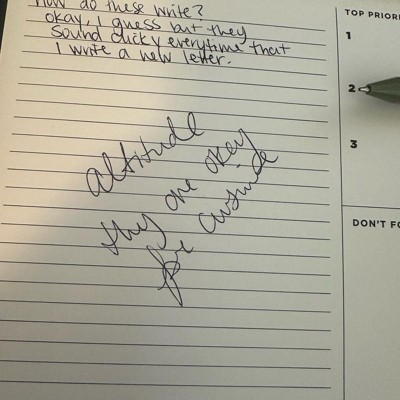 How do these write?
okay, I guess but they
sound clicky everytime that
I write a new letter.
altitude
they are okay
for cursive
TOP PRIORI
1
2
3
DON'T FO